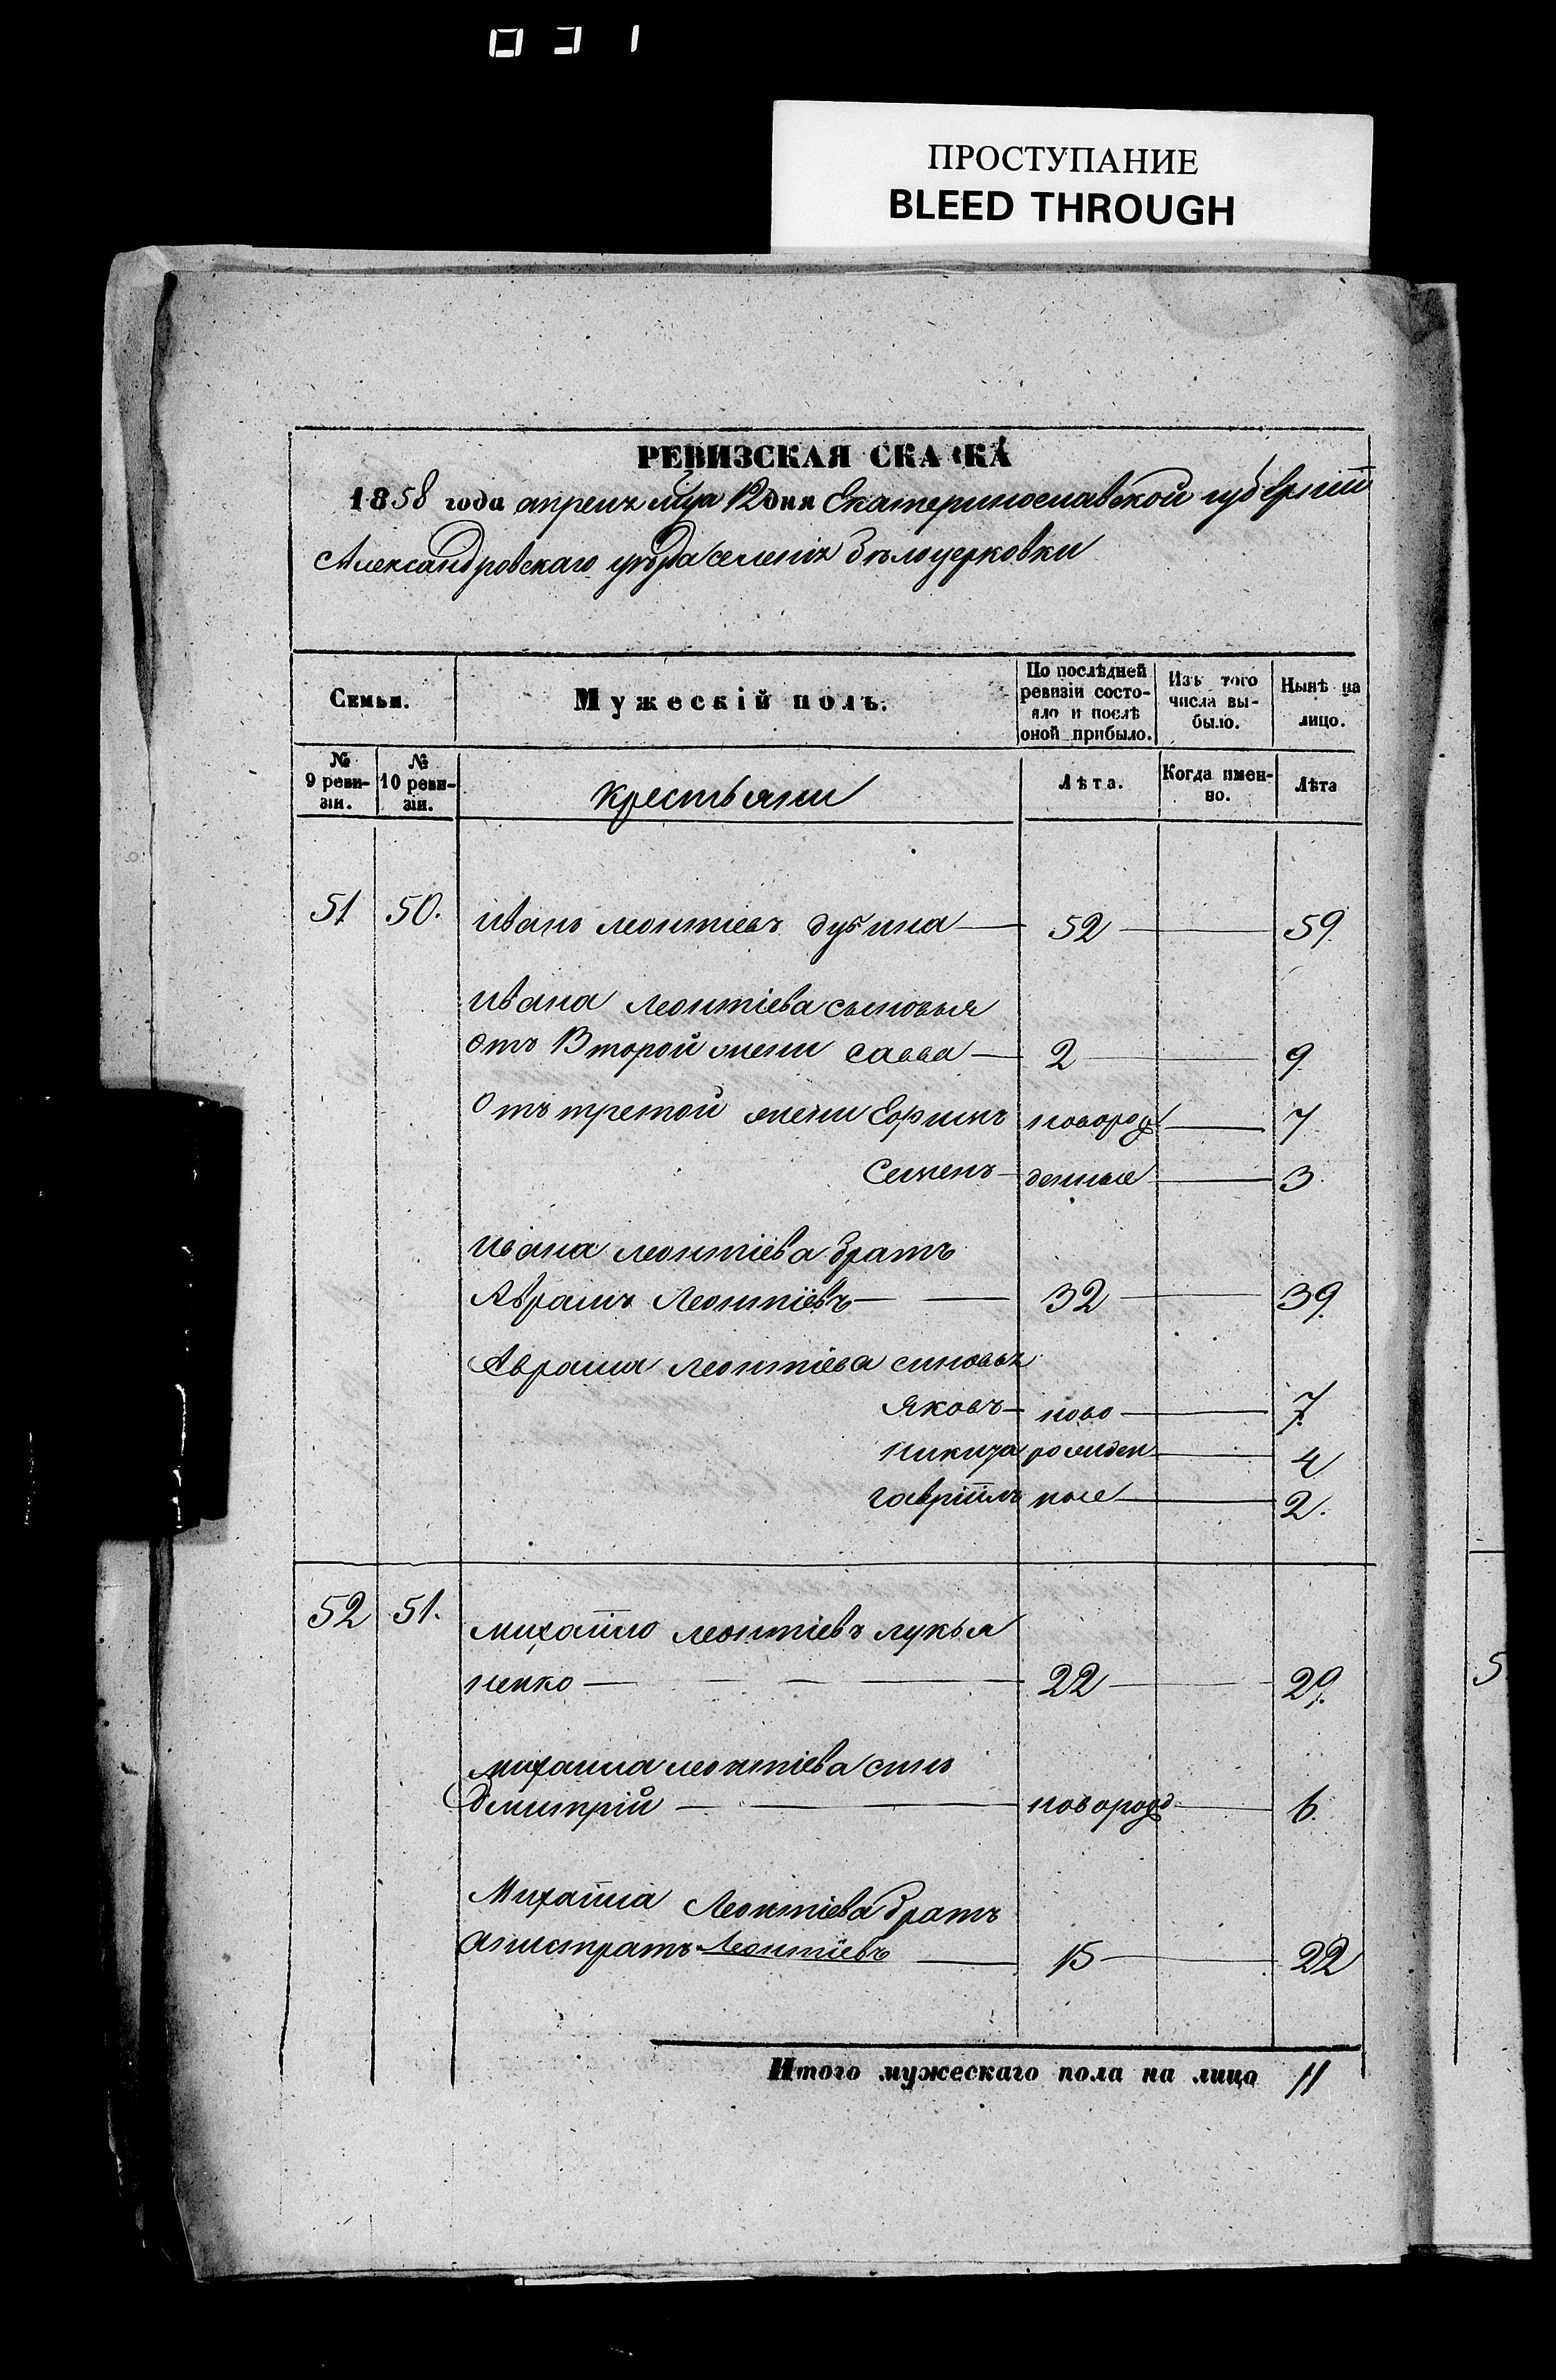 031
ПРОСТУПАНИЕ
BLEED THROUGH
РЕВИЗСКАЯ СКАЗКА
1858 года апреля мца 12 дня Екатеринославской губернiи
Александровскаго уезда селенія Белоцерковки
Семьи. Мужескій полъ. По послѣдней ревизіи состояло и послѣ оной прибыло. Изъ того числа выбыло. Нынѣ на лицо.
№ 9 ревизіи. № 10 ревизіи. крестьяни Лѣта. Когда именно. Лѣта
51 50. Иванъ Леонтиевъ Дубина 52 59.
Ивана Леонтіева сыновья
Отъ Второй жени Савва 2 9
Отъ третой жени Ефимъ новорож 7
Семенъ денные 3
Ивана Леонтіева братъ
Аврамъ Леонтіевъ 32 39.
Аврама Леонтіева синовья
Яковъ ново 7.
Никита рожден 4
Гавріилъ ные 2.
52 51. Михаило Леонтіевъ Лукья
ненко 22 29.
Михаила Леонтіева синъ
Дмитрій новорожд 6
Михаила Леонтіева братъ
Анистратъ Леонтіевъ 15 22
Итого мужескаго пола на лицо 11
5